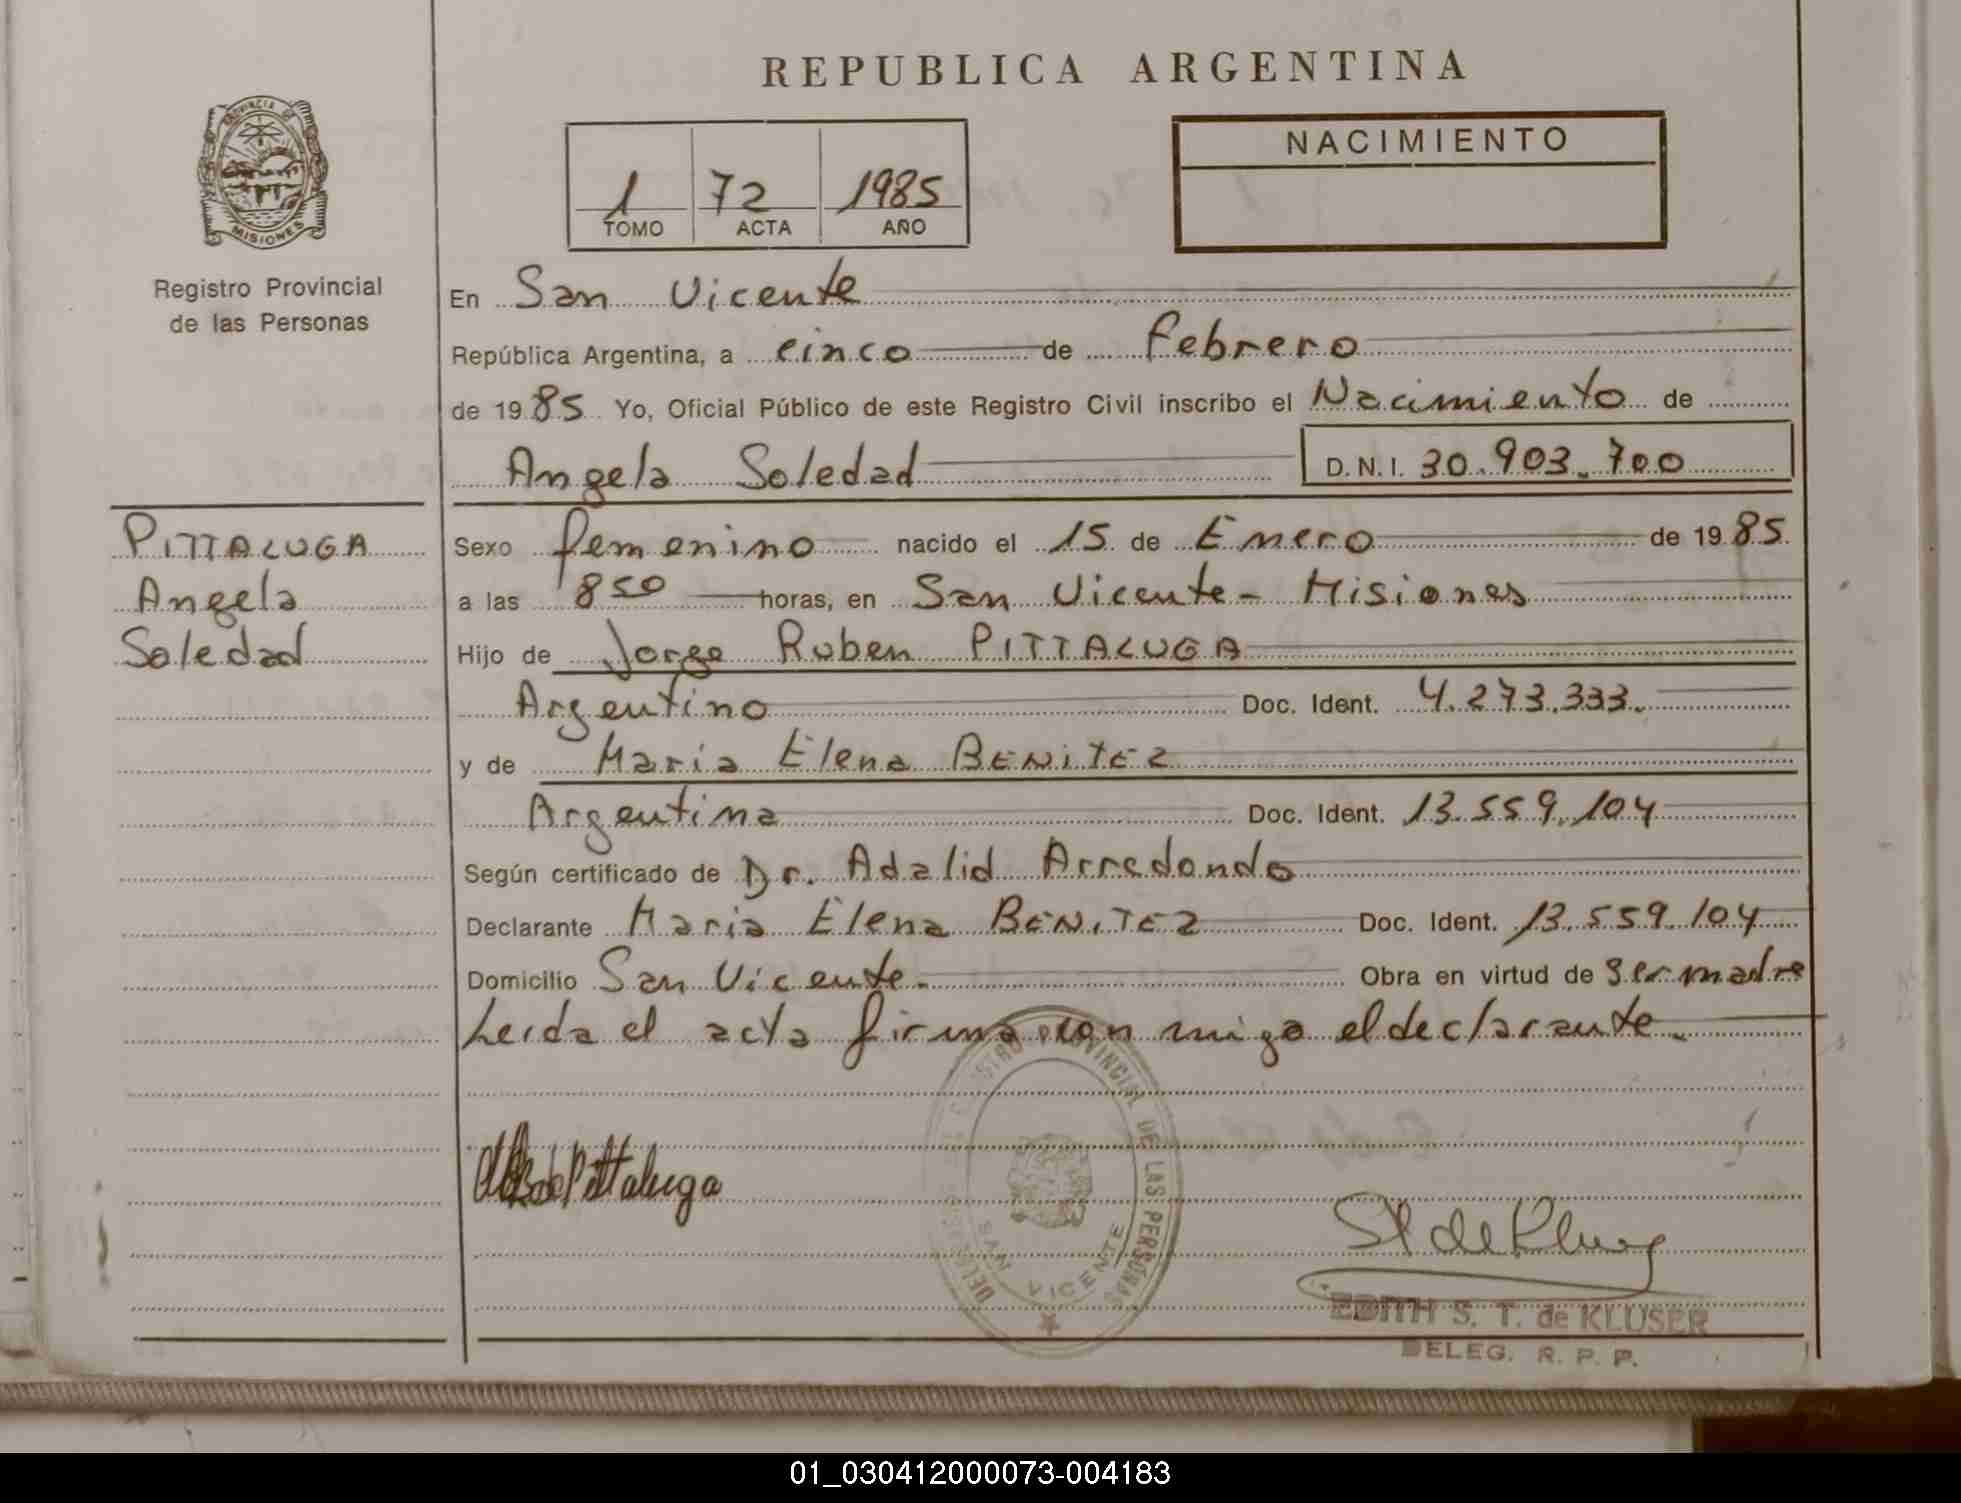 REPUBLICA ARGENTINA
PROVINCIA DE
MISIONES
Registro Provincial
de las Personas
1 72 1985
TOMO ACTA AÑO
NACIMIENTO
En San Vicente
República Argentina, a cinco de febrero
de 1985 Yo, Oficial Público de este Registro Civil inscribo el Nacimiento de
Angela Soledad D.N.I. 30.903.700
PITTALUGA
Angela
Soledad
Sexo femenino nacido el 15 de Enero de 1985
a las 850 horas, en San Vicente - Misiones
Hijo de Jorge Ruben PITTALUGA
Argentino Doc. Ident. 4.273.333.
y de Maria Elena BENITEZ
Argentina Doc. Ident. 13.559.104
Según certificado de Dr. Adalid Arredondo
Declarante Maria Elena BENITEZ Doc. Ident. 13.559.104
Domicilio San Vicente. Obra en virtud de ser madre
Leida el acta firma con migo el declarante.
de Pittaluga
REGISTRO PROVINCIAL DE LAS PERSONAS
SAN VICENTE
EDITH S. T. de KLUSER
DELEG. R. P. P.
01_030412000073-004183